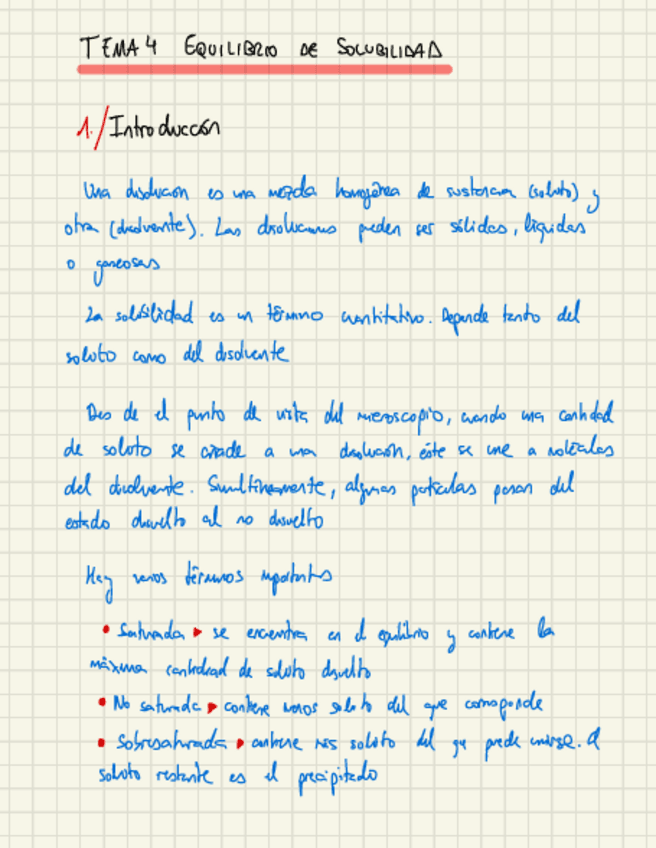 TEMA 4 EQUILIBRIO DE SOLUBILIDAD
1./ Introducción
Una disolución es una mezcla homogénea de sustancia (soluto) y
otra (disolvente). Las disoluciones pueden ser sólidas, líquidas
o gaseosas
La solubilidad es un término cuantitativo. Depende tanto del
soluto como del disolvente
Des de el punto de vista del microscopio, cuando una cantidad
de soluto se añade a una disolución, éste se une a moléculas
del disolvente. Simultáneamente, algunas partículas pasan del
estado disuelto al no disuelto
Hay varios términos importantes
• Saturada ▸ se encuentra en el equilibrio y contiene la
máxima cantidad de soluto disuelto
• No saturada ▸ contiene menos soluto del que corresponde
• Sobresaturada ▸ contiene más soluto del que puede unirse. El
soluto restante es el precipitado